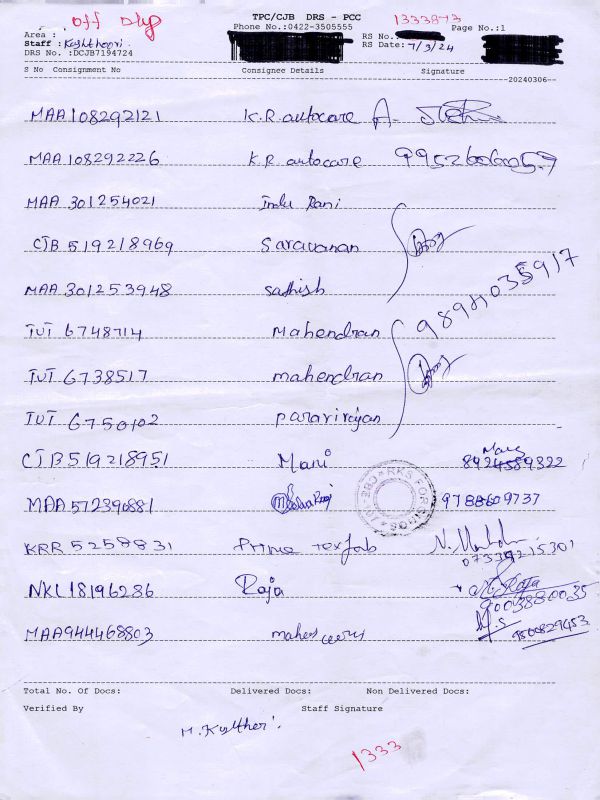 off
TPC/CJB DRS - PCC
1333873
Area :
Phone No.:0422-3505555
RS No.
Page No.:1
Staff :
RS Date: 7/3/24
DRS No. :DCJB7194724
S No Consignment No Consignee Details Signature
20240306
MAA 108292121 K.R. autocare A.
MAA 108292226 K.R. autocare 9952606005.9
MAA 301254021 Indu Rani
CJB 519218969 Saravanan
MAA 301253948 sathish
9894035917
TUT 6748714 Mahendran
TUT 6738517 mahendran
TUT 6750102
CJB 519218951 Mani
MAA 572390881 9788609737
KRR 5258831 Prime Texfab
07339215301
NKL 18196286 Raja
9003880035
MAA944468803
9500829453
Total No. Of Docs: Delivered Docs: Non Delivered Docs:
Verified By Staff Signature
1333